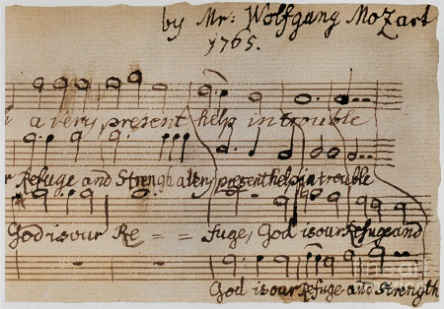 by Mr: Wolfgang Mozart
1765.
a very present help in trouble
Refuge and Strength a very present help in trouble
God is our Re = = fuge, God is our Refuge and
God is our Refuge and Strength